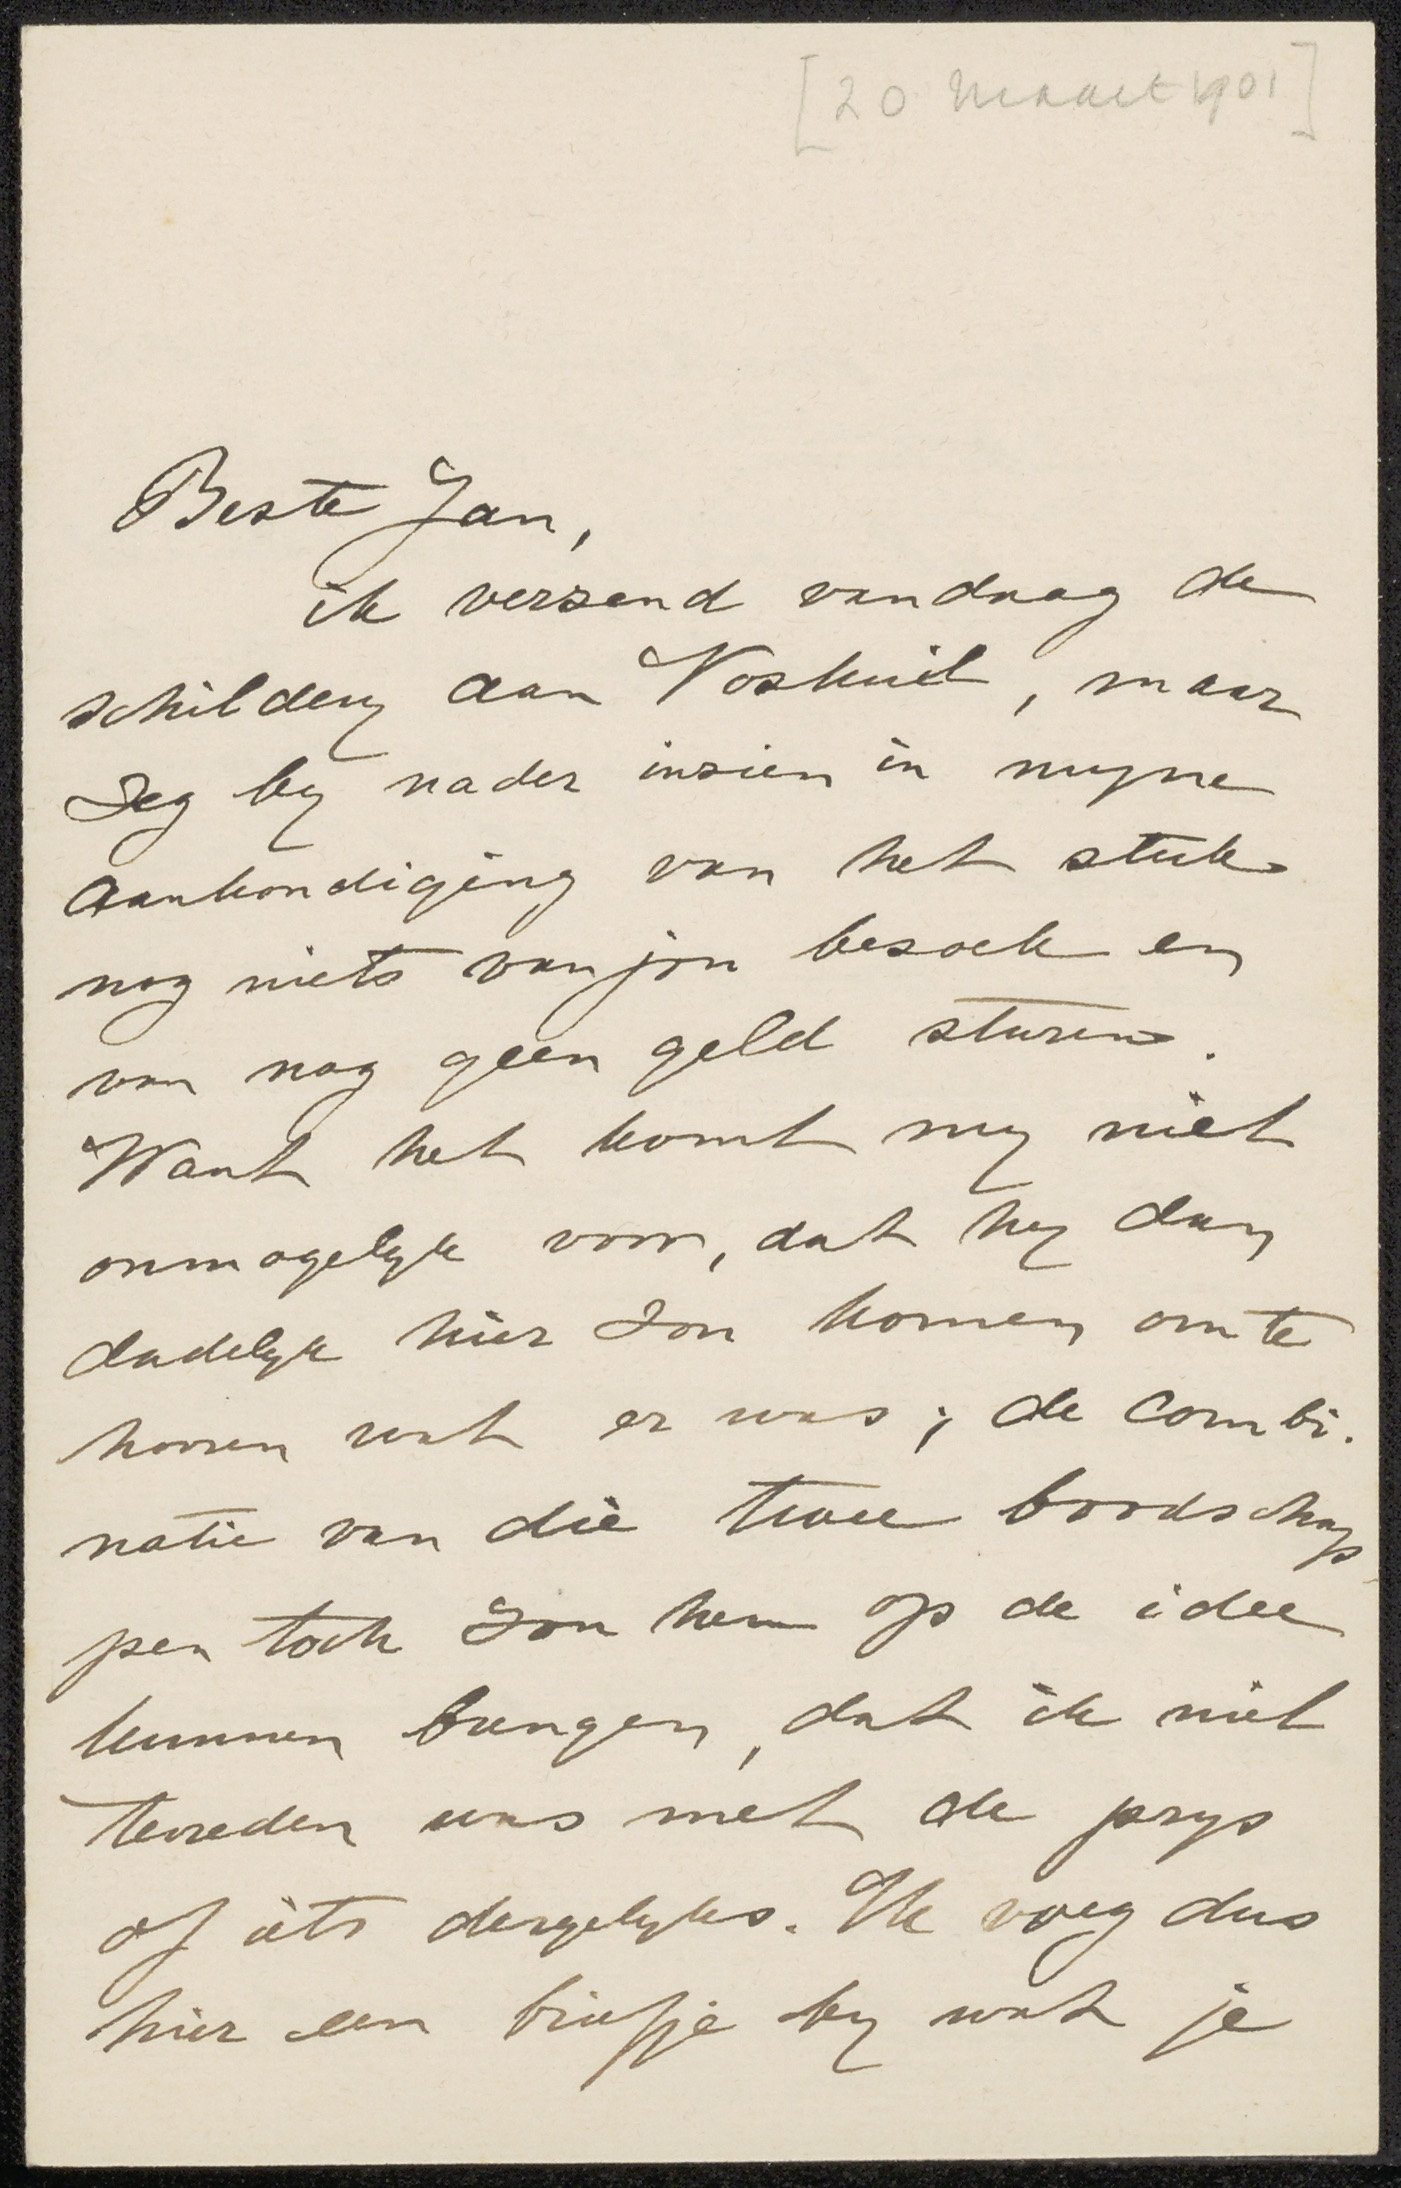 [20 Maart 1901]
Beste Jan,
ik verzend vandaag de
schildery aan Voskuil, maar
zeg by nader inzien in myne
aankondiging van het stuk
nog niets van jou bezoek en
van nog geen geld sturen.
Want het komt my niet
onmogelyk voor, dat hy dan
dadelyk hier zou komen om te
hooren wat er was; de combi-
natie van die twee boodschap
pen toch zou hem op de idee
kunnen brengen, dat ik niet
tevreden was met de prys
of iets dergelyks. Ik voeg dus
hier een briefje by wat je